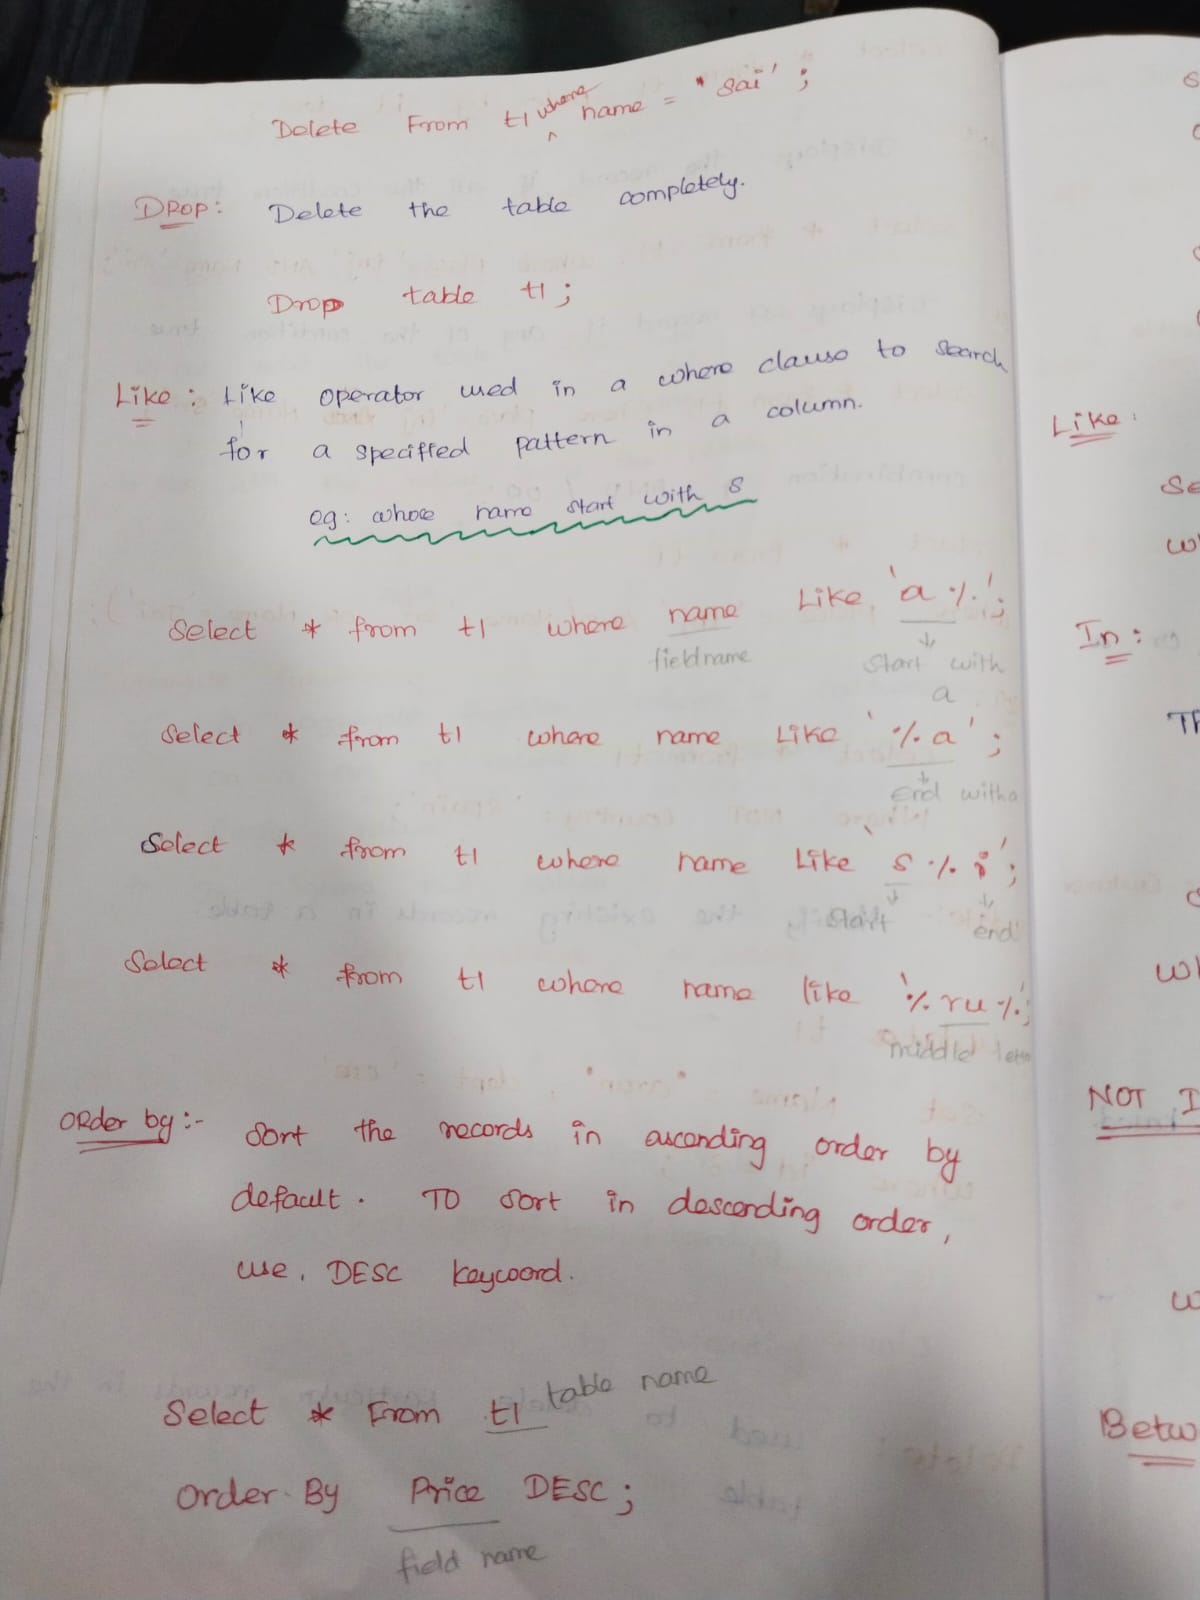 Delete From t1 where name = 'sai';
DROP: Delete the table completely.
Drop table t1;
Like: Like operator used in a where clause to search
for a specified pattern in a column.
eg: whose name start with s
Select * from t1 where name Like 'a%';
fieldname start with
a
Select * from t1 where name Like '%a';
End with a
Select * from t1 where name Like 's%i';
start end
Select * from t1 where name like '%ru%';
middle
ORder by:- Sort the records in ascending order by
default. TO sort in descending order,
use, DESC keyword.
Select * From t1 table name
Order By Price DESC;
field name
Like:
In:
NOT